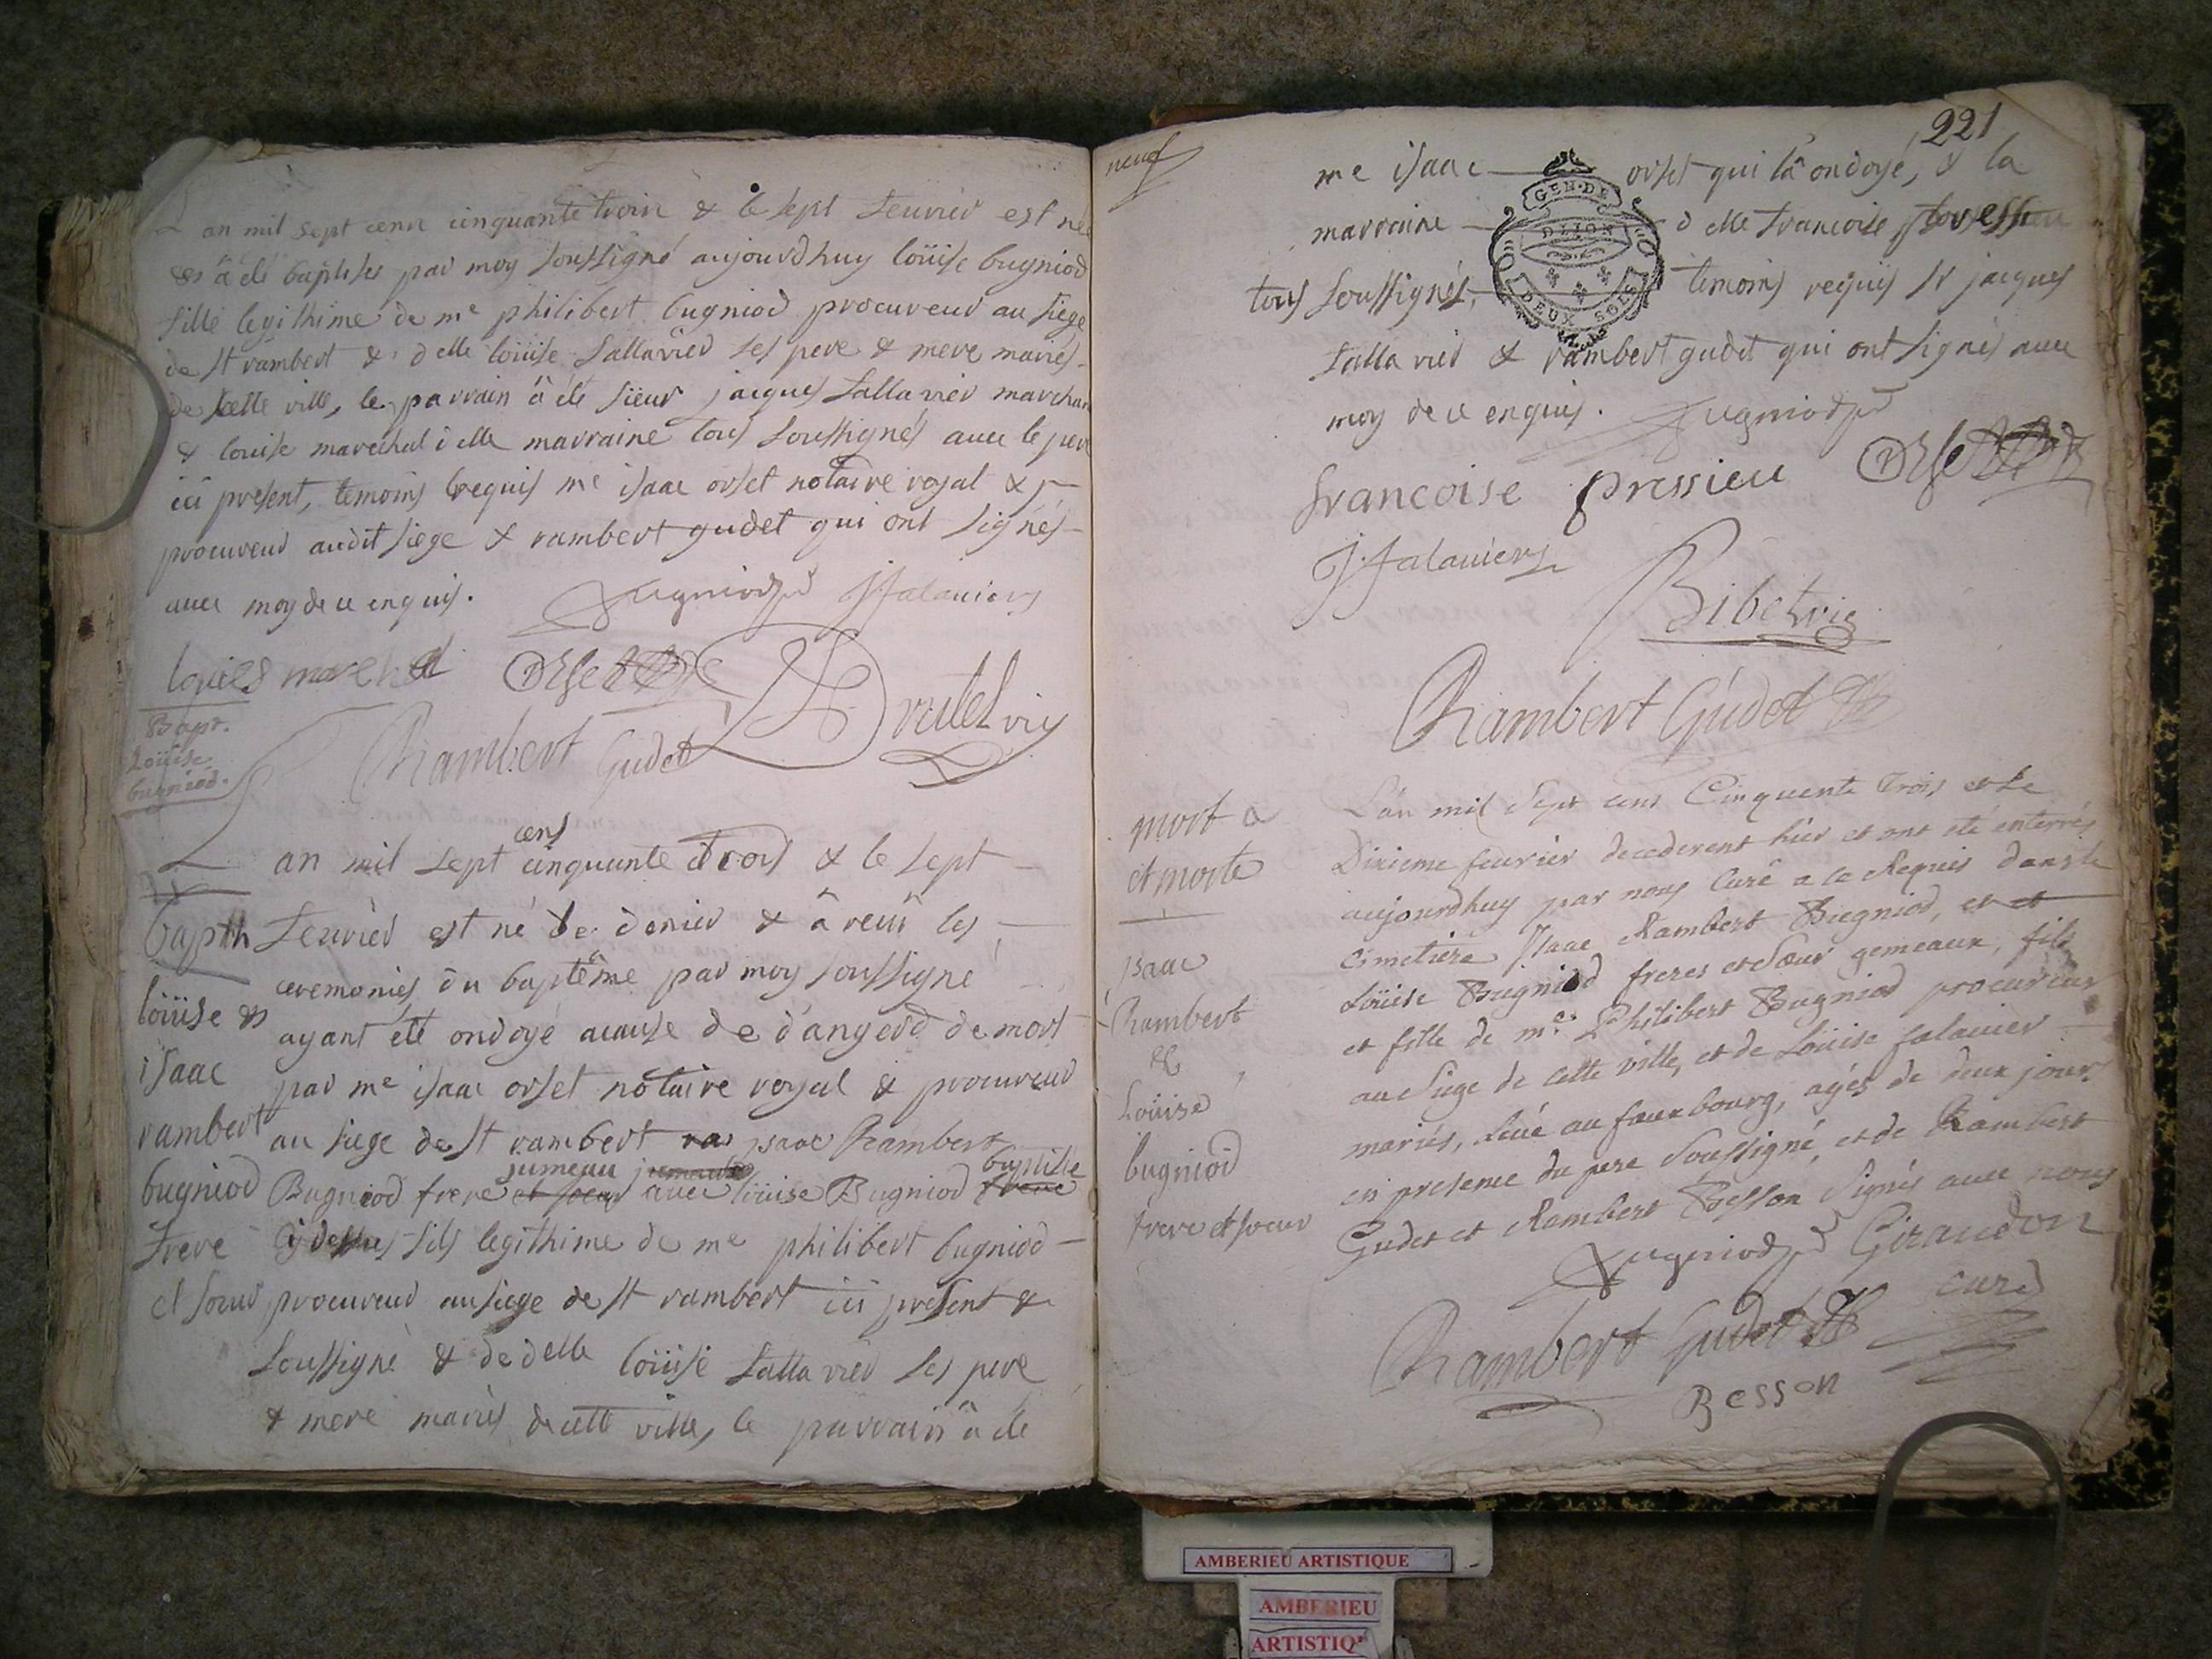 L'an mil sept cent cinquante trois & le sept feuvrier est née
& â été baptisée par moy soussigné aujourdhuy loüise bugniod
fille legithime de me philibert bugniod procureur au siege
de st rambert & delle loüise sallavier ses pere & mere mariés
de cette ville, le parrain â été sieur jacques sallavier marchand
& louise marechal delle marraine tous soussignés avec le pere
ici present, temoins requis me isaac orset notaire royal &
procureur audit siege & rambert gudet qui ont signés
avec moy de ce enquis. Bugniod J Salaviers
louise marechal Orset
Rambert Gudet vic
Bapt.
Loüise
bugniod.
L'an mil sept cens cinquante trois & le sept
feuvrier est né le dernier & â reçu les
ceremonies du baptême par moy soussigné
ayant eté ondoyé acause de d'angerd de mort
par me isaac orset notaire royal & procureur
au siege de st rambert isaac Rambert
Bugniod frere et soeur jumeau avec loüise Bugniod baptisée
cy dessus fils legithime de me philibert bugniod
procureur au siege de st rambert ici present &
soussigné & de delle loüise sallavier ses pere
& mere mariés de cette ville, le parrain â été
bapth
loüise &
isaac
rambert
bugniod
frere
et soeur
neuf
221
me isaac orset qui l'â ondoyé, & la
GEN·DE
DIJON
DEUX SOLS
marraine delle francoise
tous soussignés, temoins requis sr jacques
sallavier & rambert gudet qui ont signés avec
moy de ce enquis. Bugniod
francoise pressieu Orset
J Salaviers
Bibet vic
Rambert Gudet
mort a
et morte
isaac
Rambert
&
Loüise
bugniod
frere et soeur
L'an mil sept cens Cinquente trois et le
Dixieme feuvrier decederent hier et ont eté enterrés
aujourdhuy par nous Curé a ce Requis dans le
cimetiere Isaac Rambert Bugniod, et et
Loüise Bugniod freres et soeur gemeaux, fils
et fille de me Philibert Bugniod procureur
au siege de cette ville, et de Loüise salavier
mariés, au fauxbourg, agés de deux jours
en presence du pere soussigné, et de Rambert
Gudet et Rambert Besson signés avec nous
Bugniod Giraudon
curé
Rambert Gudet
Besson
AMBERIEU ARTISTIQUE
AMBERIEU
ARTISTIQ